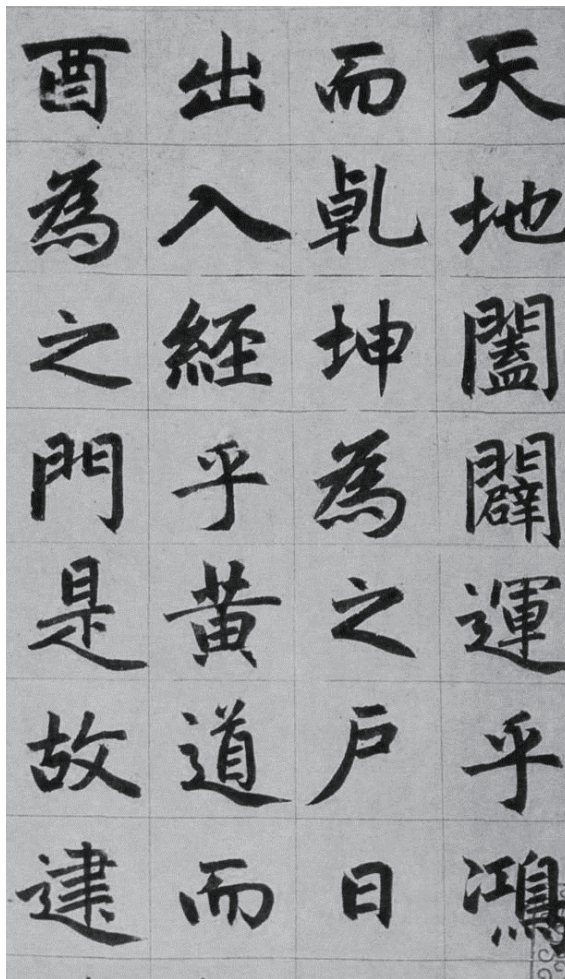 天地闔闢運乎鴻
而乾坤為之户日
出入經乎黄道而
酉為之門是故建